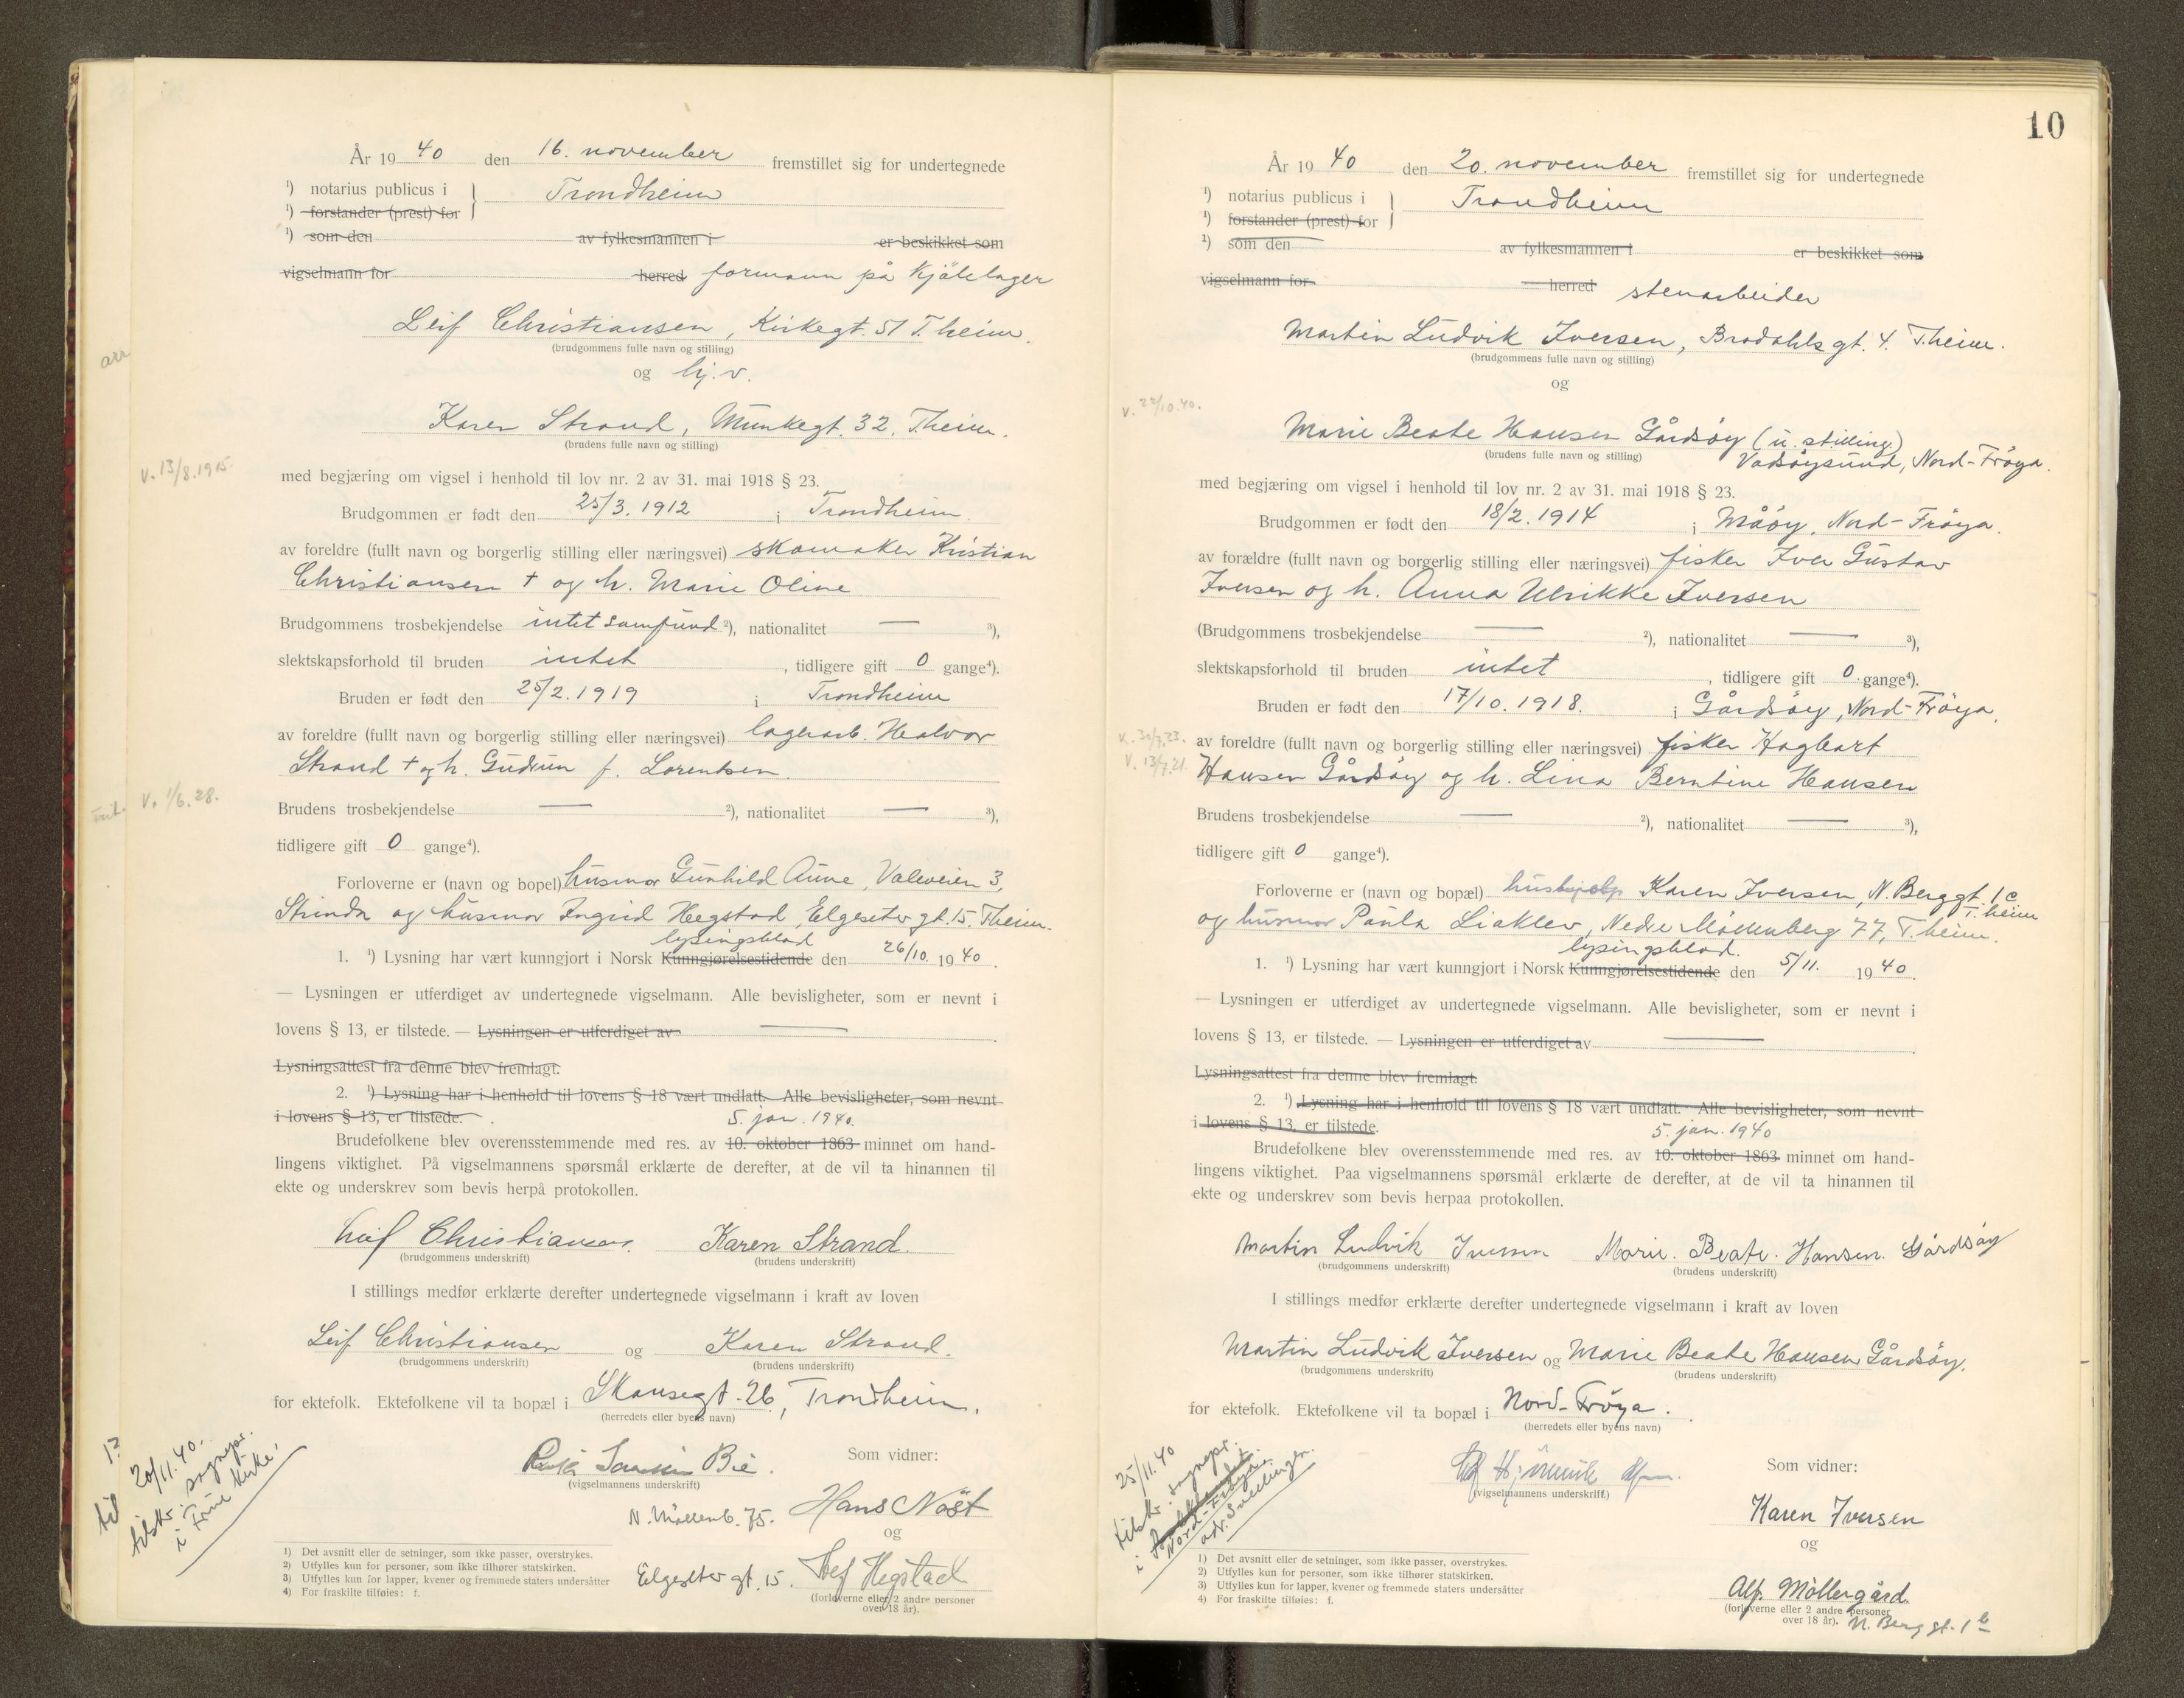 År 19 40 den 16. november fremstillet sig for undertegnede
¹) notarius publicus i } Trondheim
¹) forstander (prest) for
¹) som den av fylkesmannen i er beskikket som
vigselmann for herred formann på kjølelager
Leif Christiansen, Kirkegt. 51 T.heim.
(brudgommens fulle navn og stilling)
og hj.v.
Karen Strand, Munkegt. 32, T.heim.
(brudens fulle navn og stilling)
V. 13/8.1915.
med begjæring om vigsel i henhold til lov nr. 2 av 31. mai 1918 § 23.
Brudgommen er født den 25/3. 1912 i Trondheim.
av foreldre (fullt navn og borgerlig stilling eller næringsvei) skomaker Kristian
Christiansen † og h. Marie Oline
Brudgommens trosbekjendelse intet samfund ²), nationalitet — ³),
slektskapsforhold til bruden intet, tidligere gift 0 gange⁴).
Bruden er født den 25/2. 1919 i Trondheim
av foreldre (fullt navn og borgerlig stilling eller næringsvei) lagerarb. Halvor
Strand † og h. Gudrun f. Lorentsen.
V. 1/6.28.
Brudens trosbekjendelse — ²), nationalitet — ³),
tidligere gift 0 gange⁴).
Forloverne er (navn og bopel) husmor Gunhild Aune, Valeveien 3,
Strinda og husmor Ingrid Hegstad, Elgeseter gt. 15, T.heim.
lysingsblad
1. ¹) Lysning har vært kunngjort i Norsk Kunngjørelsestidende den 26/10. 19 40.
— Lysningen er utferdiget av undertegnede vigselmann. Alle bevisligheter, som er nevnt i
lovens § 13, er tilstede. — Lysningen er utferdiget av —
Lysningsattest fra denne blev fremlagt.
2. ¹) Lysning har i henhold til lovens § 18 vært undlatt. Alle bevisligheter, som nevnt
i lovens § 13, er tilstede.
5. jan. 1940.
Brudefolkene blev overensstemmende med res. av 10. oktober 1863 minnet om hand-
lingens viktighet. På vigselmannens spørsmål erklærte de derefter, at de vil ta hinannen til
ekte og underskrev som bevis herpå protokollen.
Leif Christiansen. Karen Strand.
(brudgommens underskrift) (brudens underskrift)
I stillings medfør erklærte derefter undertegnede vigselmann i kraft av loven
Leif Christiansen og Karen Strand.
(brudgommens underskrift) (brudens underskrift)
for ektefolk. Ektefolkene vil ta bopæl i Skansegt. 26, Trondheim.
(herredets eller byens navn)
20/11.40.
tilskr. sognepr.
i Frue kirke
Bie. Som vidner:
(vigselmannens underskrift)
N. Möllenb. 75. Hans Nöst
og
Elgeseter gt. 15. Hegstad
(forloverne eller 2 andre personer
over 18 år).
1) Det avsnitt eller de setninger, som ikke passer, overstrykes.
2) Utfylles kun for personer, som ikke tilhører statskirken.
3) Utfylles kun for lapper, kvener og fremmede staters undersåtter
4) For fraskilte tilføies: f.
10
År 19 40 den 20. november fremstillet sig for undertegnede
¹) notarius publicus i } Trondheim
¹) forstander (prest) for
¹) som den av fylkesmannen i er beskikket som
vigselmann for herred stenarbeider
Martin Ludvik Iversen, Brodahls gt. 4. T.heim.
(brudgommens fulle navn og stilling)
og
V. 22/10.40.
Marie Beate Hansen Gårdsöy (u. stilling)
(brudens fulle navn og stilling) Vadsöysund, Nord-Fröya.
med begjæring om vigsel i henhold til lov nr. 2 av 31. mai 1918 § 23.
Brudgommen er født den 18/2. 1914 i Måöy, Nord-Fröya.
av forældre (fullt navn og borgerlig stilling eller næringsvei) fisker Iver Gustav
Iversen og h. Anna Ulrikke Iversen
(Brudgommens trosbekjendelse — ²), nationalitet — ³),
slektskapsforhold til bruden intet, tidligere gift 0 gange⁴).
Bruden er født den 17/10. 1918. i Gårdsöy, Nord-Fröya.
av foreldre (fullt navn og borgerlig stilling eller næringsvei) fisker Hagbart
V. 13/7.21.
Hansen Gårdsöy og h. Lina Berntine Hansen
Brudens trosbekjendelse — ²), nationalitet — ³),
tidligere gift 0 gange⁴).
Forloverne er (navn og bopæl) hushjelp Karen Iversen, N. Berggt. 1c
T.heim
og husmor Paula Liaklev, Nedre Möllenberg 77, T.heim.
lysingsblad.
1. ¹) Lysning har vært kunngjort i Norsk Kunngjørelsestidende den 5/11. 19 40.
— Lysningen er utferdiget av undertegnede vigselmann. Alle bevisligheter, som er nevnt i
lovens § 13, er tilstede. — Lysningen er utferdiget av —
Lysningsattest fra denne blev fremlagt.
2. ¹) Lysning har i henhold til lovens § 18 vært undlatt. Alle bevisligheter, som nevnt
i lovens § 13, er tilstede.
5. jan. 1940
Brudefolkene blev overensstemmende med res. av 10. oktober 1863 minnet om hand-
lingens viktighet. Paa vigselmannens spørsmål erklærte de derefter, at de vil ta hinannen til
ekte og underskrev som bevis herpaa protokollen.
Martin Ludvik Iversen Marie. Beate. Hansen. Gårdsöy
(brudgommens underskrift) (brudens underskrift)
I stillings medfør erklærte derefter undertegnede vigselmann i kraft av loven
Martin Ludvik Iversen og Marie Beate Hansen Gårdsöy.
(brudgommens underskrift) (brudens underskrift)
for ektefolk. Ektefolkene vil ta bopæl i Nord-Fröya.
(herredets eller byens navn)
25/11.40
tilskr. sognepr.
i
Nord-Fröya.
adr. Svellingen.
Som vidner:
(vigselmannens underskrift.)
Karen Iversen
og
Alf. Möllergård.
(forloverne eller 2 andre personer
over 18 år). N. Berg gt. 1b
1) Det avsnitt eller de setninger, som ikke passer, overstrykes.
2) Utfylles kun for personer, som ikke tilhører statskirken.
3) Utfylles kun for lapper, kvener og fremmede staters undersåtter
4) For fraskilte tilføies: f.